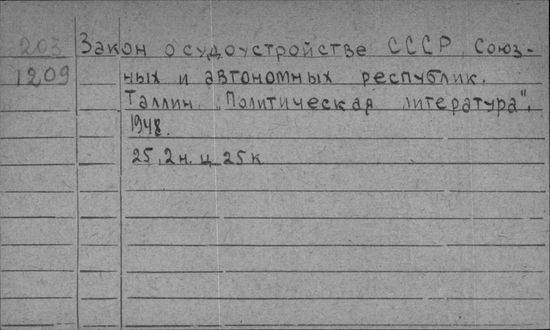 203 Закон о судоустройстве СССР Союз-
1209 ных и автономных республик.
Таллин. "Политическая литература".
1948.
25, 2н. ц. 25к